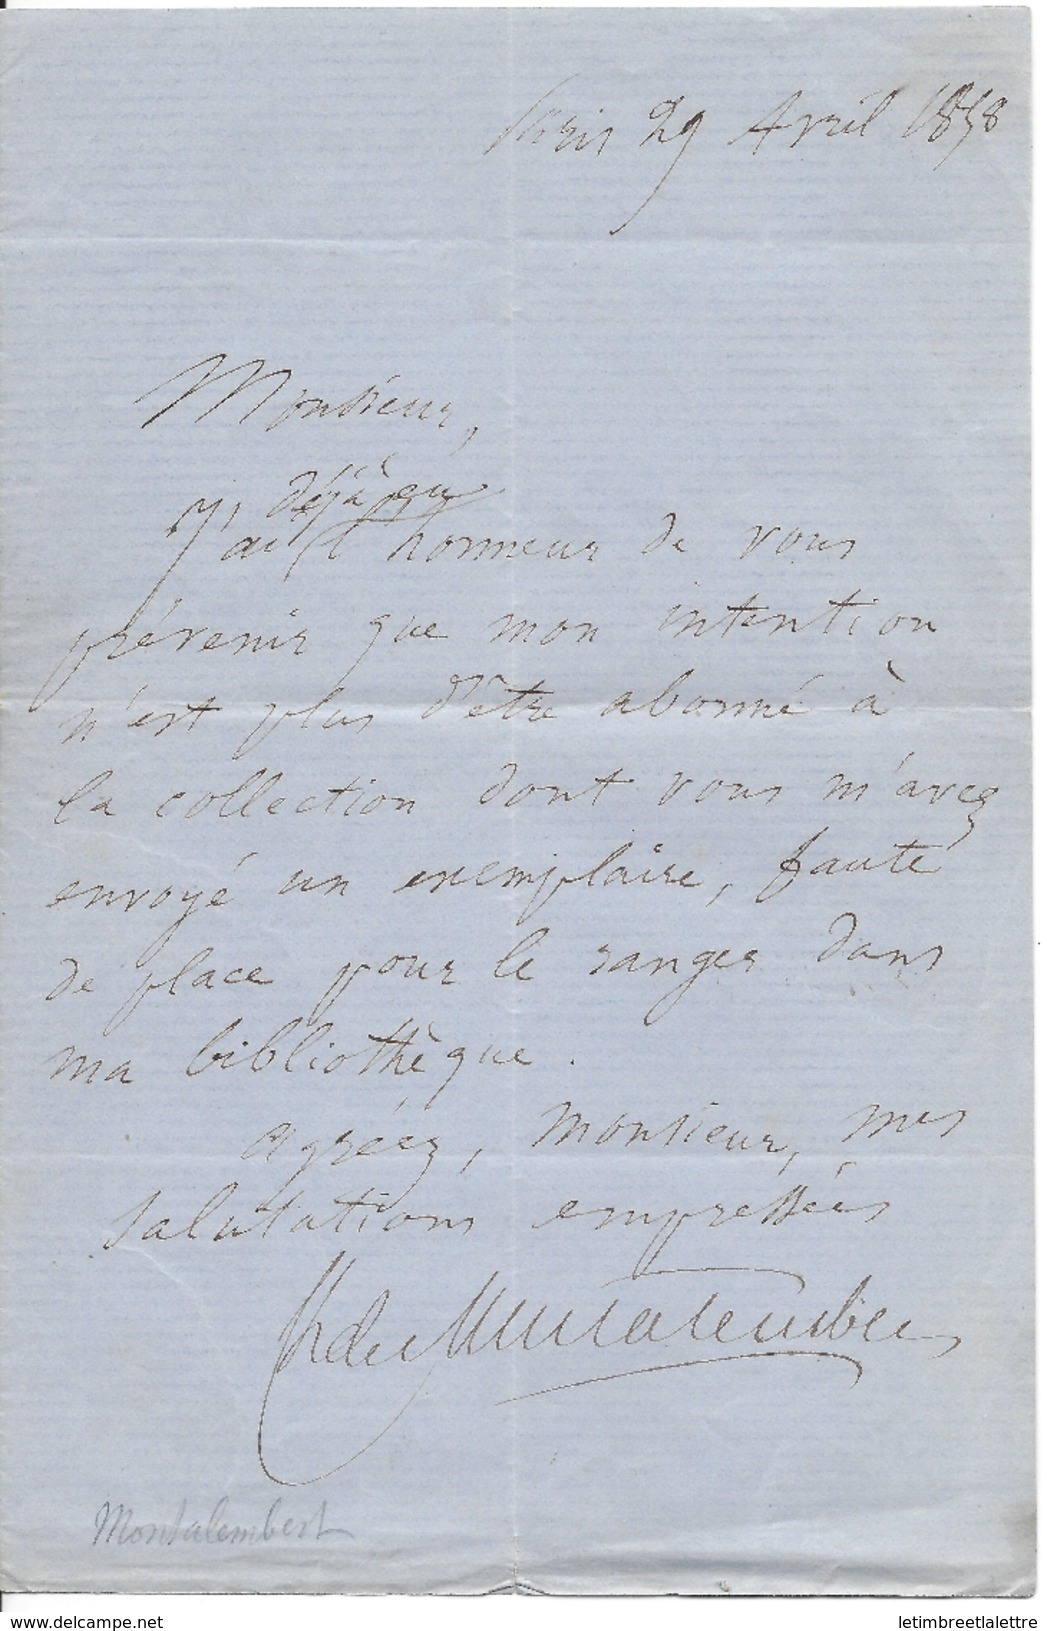 Paris 29 Avril 1858
Monsieur,
déjà eu
J'ai l'honneur de vous
prévenir que mon intention
n'est plus d'être abonné à
la collection dont vous m'avez
envoyé un exemplaire, faute
de place pour le ranger dans
ma bibliothèque.
Agréez, Monsieur, mes
salutations empressées
Ch de Montalembert
Montalembert
www.delcampe.net
letimbreetlalettre